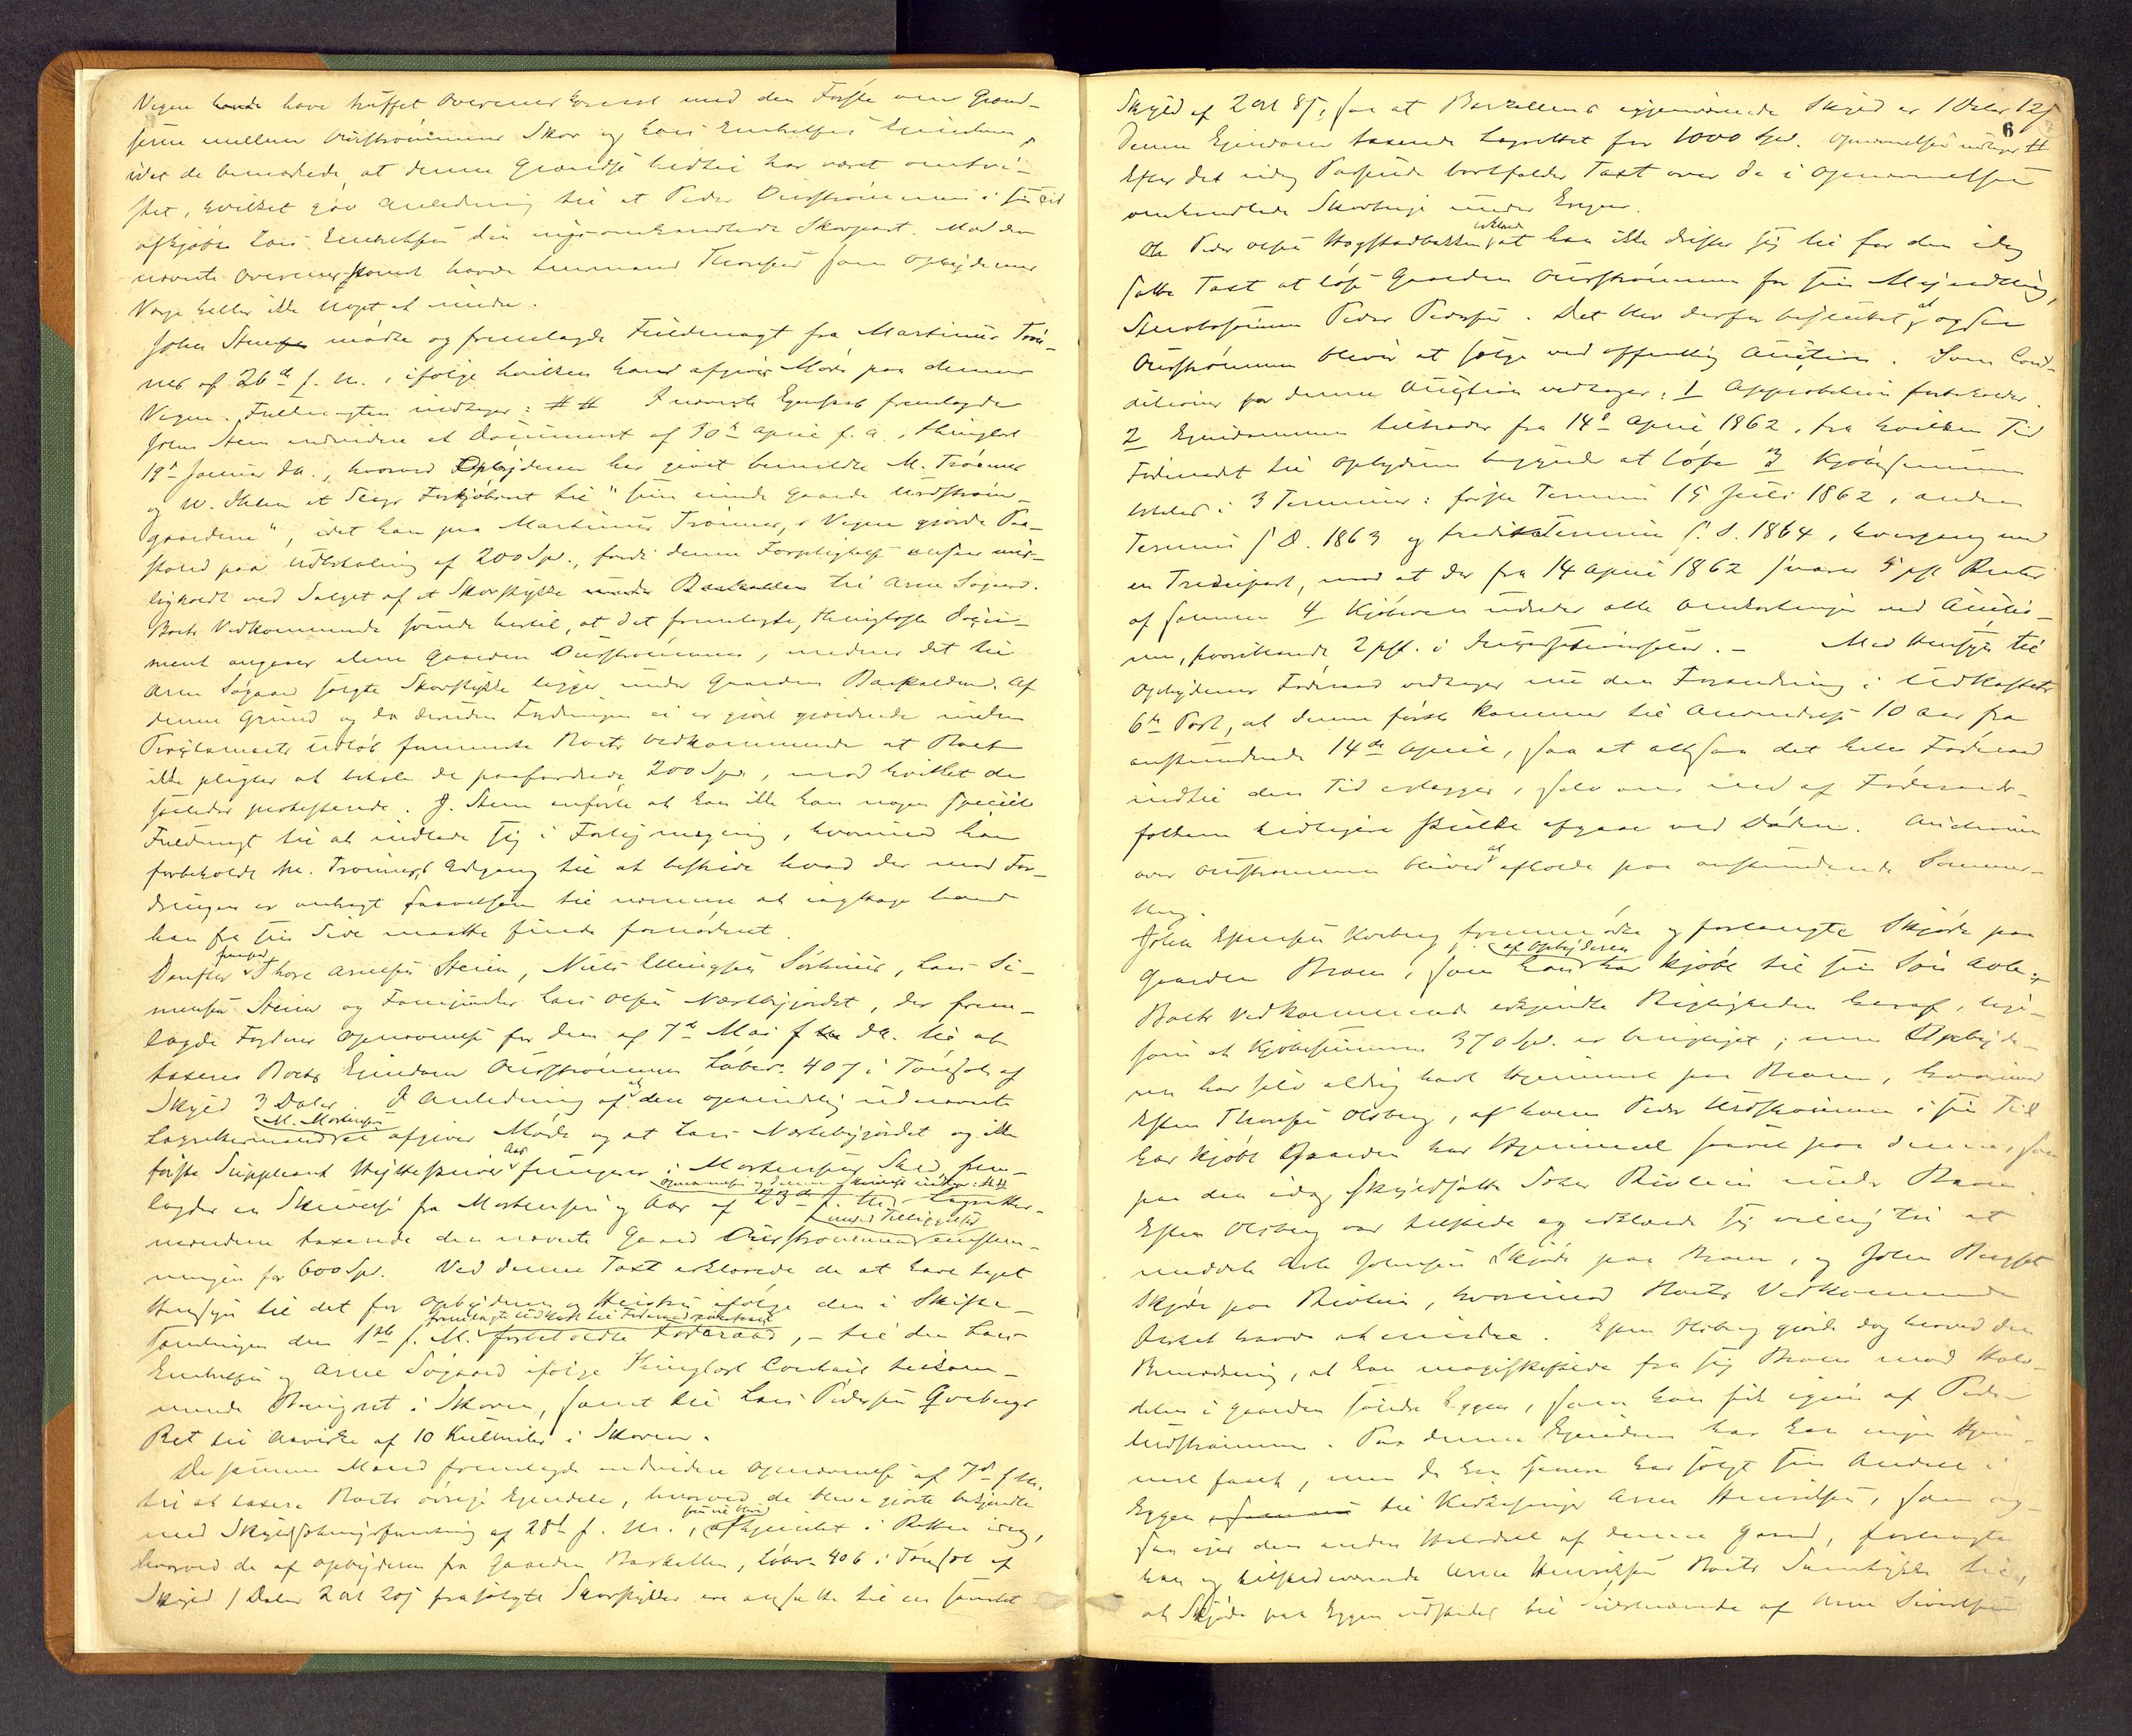 Vegne havde have truffet Overenskomst med den Første om Grænd-
serne mellem Ourstrømmens Skov og Lars Embretsens Eiendom,
idet de bemærkede, at denne Grændse hidtil har været omtvi-
stet, hvilket gav Anledning til at Peder Ourstrømmen i sin Tid
afkjøbte Lars Embretsen den nysomhandlede Skovpart. Mod den
nævnte Overenskomst havde Lensmand Thoresen som Opbyderens
Værge heller ikke Noget at erindre.
John Steen mødte og fremlagde Fuldmagt fra Martinus Trøn-
nes af 26de f. M., ifølge hvilken han afgiver Møde paa dennes
Vegne. Fuldmagten indtages: # # I nævnte Egenskab fremlagde
John Steen endvidere et Document af 30te April f. A., thinglæst
19de Januar d.A., hvorved Opbyderen har givet bemeldte M. Trønnes
og
gaardene", idet han paa Martinus Trønnes's Vegne gjorde Paa-
stand paa Udbetaling af 200 Spd., fordi denne Forpligtelse ansees mis-
ligholdt ved Salget af et Skovstykke under Barkalden til Arne Søgaard.
Boets Vedkommende svarede hertil, at det fremlagte, thinglæste Docu-
ment angaaer alene Gaarden Ourstrømmen, medens det til
Arne Søgaard solgte Skovstykke ligger under Gaarden Barkalden. Af
denne Grund og da desuden Fordringen ei er gjort gjældende inden
Proclamaets Udløb formente Boets Vedkommende at Boet
ikke pligter at betale de paafordrede 200 Spd, mod hvilket de
saaledes protesterede. J. Steen anførte at han ikke har nogen speciel
Fuldmagt til at indlade sig i Forligsmægling, hvormed han
forbeholdt M. Trønnes's Adgang til at bestride hvad der mod For-
dringen er anbragt saavelsom til nærmere at iagttage hvad
han fra sin Side maatte finde fornødent.
Derefter fremstod Thore Arnesen Steien, Niels Ellingsen Sørhuus, Lars Si-
mensen Steien og Formynder Lars Olsen Næstbyjordet, der frem-
lagde Fogdens Opnævnelse for dem af 7de Mai d.A. til at
taxere Boets Eiendom Ourstrømmen Løbnr. 407 i Tønset af
Skyld 3 Daler. I Anledning af at den oprindelig udnævnte
Lagrettesmand M. Mortensen ei afgiver Møde og at Lars Næstebyjordet og ikke
første Suppleant Aas fungerer i Mortensens Sted, frem-
lagdes en Skrivelse fra Mortensen og Aas af 23de f. M. Opnævnelsen og denne Skrivelse indtages: ## Lagrettes-
mændene taxerede den nævnte Gaard Ourstrømmen med Tilliggelser eenstem-
migen for 600 Spd. Ved denne Taxt erklærede de at have taget
Hensyn til det for Opbyderen og Hustru ifølge den i Skifte-
samlingen den 1ste f. M. fremlagte Udkast til Føderaadscontract forbeholdte Føderaad, - til den Lars
Embretsen og Arne Søgaard ifølge thinglæst Contract tilkom-
mende Brugsret i Skoven, samt til Lars Pedersen Qvebergs
Ret til Aavirke af 10 Kulmiler i Skoven.
De samme Mænd fremlagde endvidere Opnævnelse af 7de f. M.
til at taxere Boets øvrige Eiendele, hvorved de bleve gjorte bekjendte
med Skyldsætningsforretning af 28de f. M., afhjemlet i Retten idag,
hvorved de af Opbyderen fra Gaarden Barkalden, Løbnr. 406 i Tønset af
Skyld 1 Daler 2 Ort 20 s frasolgte Skovstykker ere ansatte til en samlet
Skyld af 2 Ort 8 s, saa at Barkaldens gjenværende Skyld er 1 Daler 12 s
6
Denne Eiendom taxerede Lagrettet for 1000 Spd. Opnævnelsen indtages #
Efter det idag Passerede bortfalder Taxt over de i Opnævnelsen
omhandlede Skovteige under Eggen.
Ole Peder Olsen Hogstadbakken erklærede at han ikke drister sig til for den idag
satte Taxt at løse Gaarden Ourstrømmen for sin Myndling,
Peder Pedersen. Det blev derfor besluttet, at ogsaa
Ourstrømmen bliver at sælge ved offentlig Auction. Som Cond-
itioner for denne Auction vedtages: 1 Approbation forbeholdes.
2 Eiendommen tiltrædes fra 14de April 1862, fra hvilken Tid
Føderaadet til Opbyderen begynder at løbe 3 Kjøbesummen
betales i 3 Terminer: første Termin 15 Juli 1862, anden
Termin s. D. 1863 og tredie Termin s. D. 1864, hvergang med
en Trediepart, med at der fra 14 April 1862 svares 5 pCt Renter
af Summen 4 Kjøberen udreder alle Omkostninger ved Auctio-
nen, 2 pCt. i . - Med Hensyn til
Opbyderens Føderaad vedtages nu den Forandring i Udkastets
6te Post, at denne først kommer til Anvendelse 10 Aar fra
anstundende 14de April, saa at altsaa det hele Føderaad
indtil den Tid erlægges, selv om een af Føderaads-
folkene tidligere skulde afgaae ved Døden. Auctionen
over Ourstrømmen bliver at afholde paa anstundende Sommer-
thing.
John Koeberg fremmødte og forlangte Skjøde paa
Gaarden Broen, som han af Opbyderen har kjøbt til sin Søn Arle.
Boets Vedkommende erkjendte Rigtigheden heraf, lige-
som at Kjøbesummen 370 Spd. er berigtiget; men Opbyde-
ren har selv aldrig havt Hjemmel paa Broen, hvorimod
Esten Thoresen Olsberg, af hvem Peder Urdstrømmen i sin Tid
har kjøbt Gaarden har Hjemmel saavel paa denne, som
paa den idag skyldsatte under Broen.
Esten Olsberg var tilstede og erklærede sig villig til at
meddele Arle Johnsen Skjøde paa Broen, og John
Skjøde paa, hvorimod Boets Vedkommende
Intet havde at erindre. Esten Olsberg gjorde dog herved den
Bemærkning, at han mageskiftede fra sig Broen mod Halv-
delen i Gaarden søndre Eggen, som han fik igjen af Peder
Urdstrømmen. Paa denne Eiendom har han ingen Hjem-
mel faaet, men da han senere har solgt sin Andeel i
Eggen til Kirkesanger Arne Henriksen, som og-
saa eier den anden Halvdeel af denne Gaard, forlangte
han og tilstedeværende Arne Henriksen Boets Samtykke til,
at Skjøde paa Eggen udstedes til Sidstnævnte af Arne Sivertsen